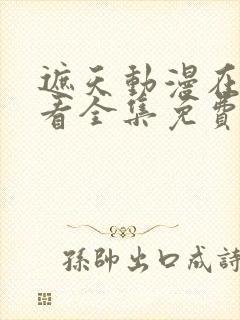 遮天動漫在
看全集免費
孫帥出口成詩